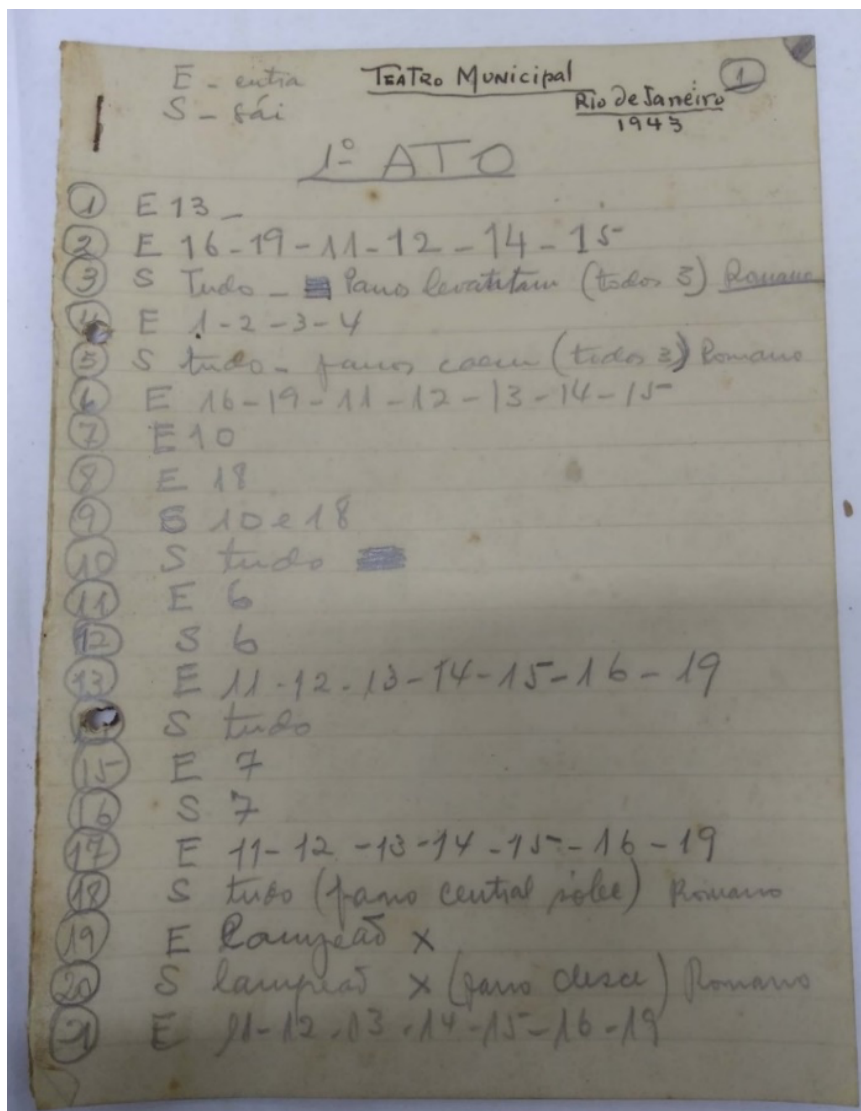 E - entra
S - sái
TEATRO MUNICIPAL
1
Rio de Janeiro
1943
1º ATO
1 E 13 -
2 E 16-19-11-12-14-15
3 S Tudo - Pano levantam (todos 3) Romano
4 E 1-2-3-4
5 S tudo - panos caem (todos 3) Romano
6 E 16-19-11-12-13-14-15
7 E 10
8 E 18
9 S 10 e 18
10 S tudo
11 E 6
12 S 6
13 E 11-12-13-14-15-16-19
S tudo
15 E 7
16 S 7
17 E 11-12-13-14-15-16-19
18 S tudo (pano central sobe) Romano
19 E Lampeão x
20 S lampeão x (pano desce) Romano
21 E 11-12-13-14-15-16-19